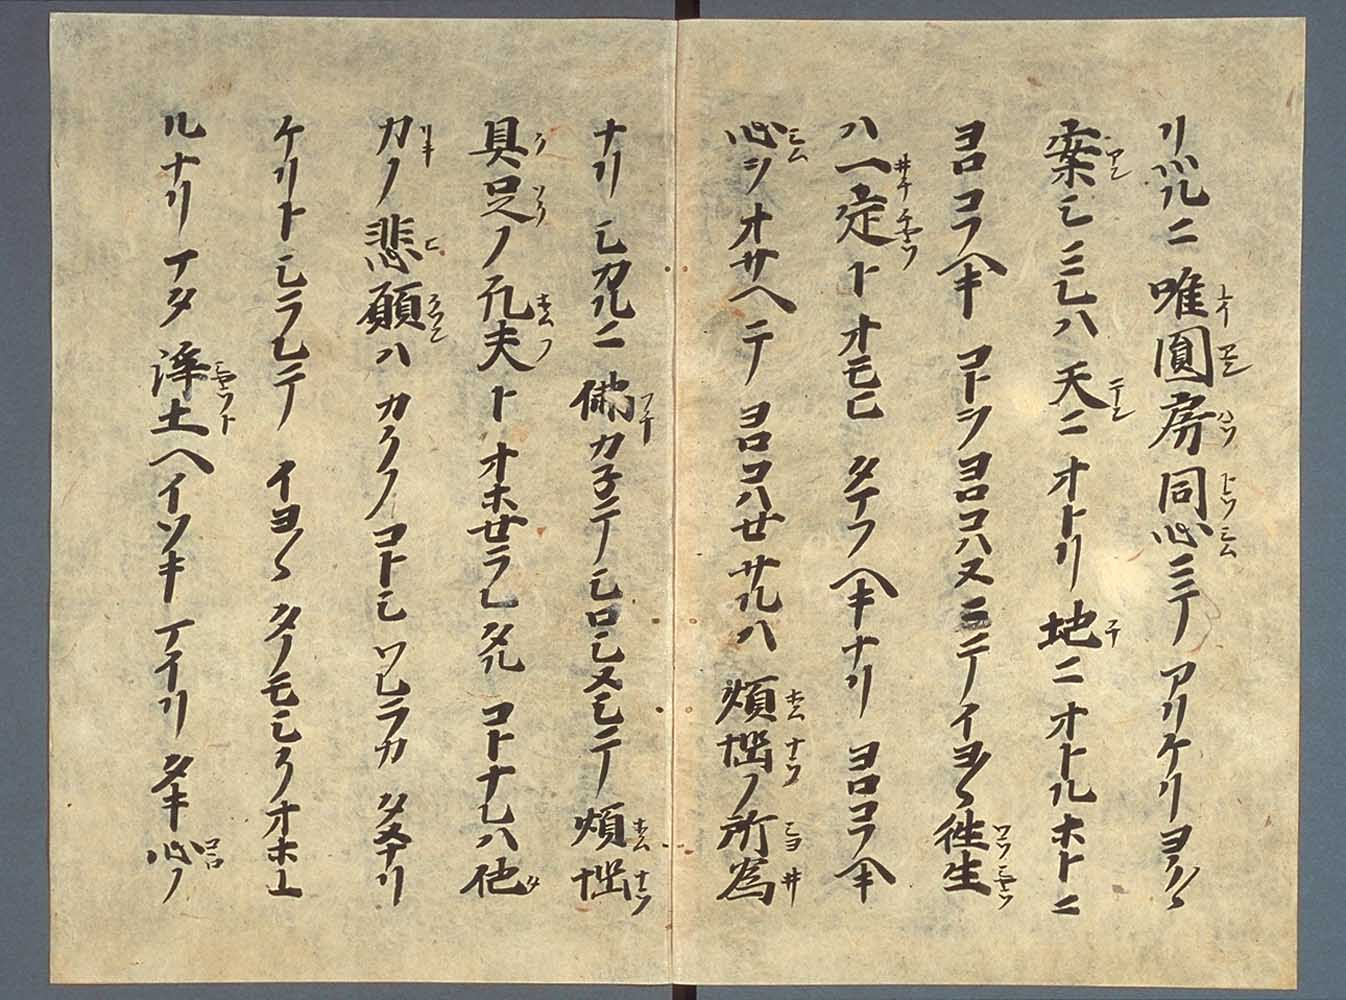 リツルニ唯圓房同心ニテアリケリヨク〱
案シミレハ天ニオトリ地ニオトルホトニ
ヨロコフヘキコトヲヨロコハヌニテイヨ〱往生
ハ一定トオモヒタマフヘキナリヨロコフヘキ
心ヲオサヘテヨロコハセサルハ煩悩ノ所為
ナリシカルニ佛カネテシロシメシテ煩悩
具足ノ凡夫トオホセラレタルコトナレハ他
力ノ悲願ハカクノコトシワレラカタメナリ
ケリトシラレテイヨ〱タノモシクオホユ
ルナリマタ浄土ヘイソキマイリタキ心ノ